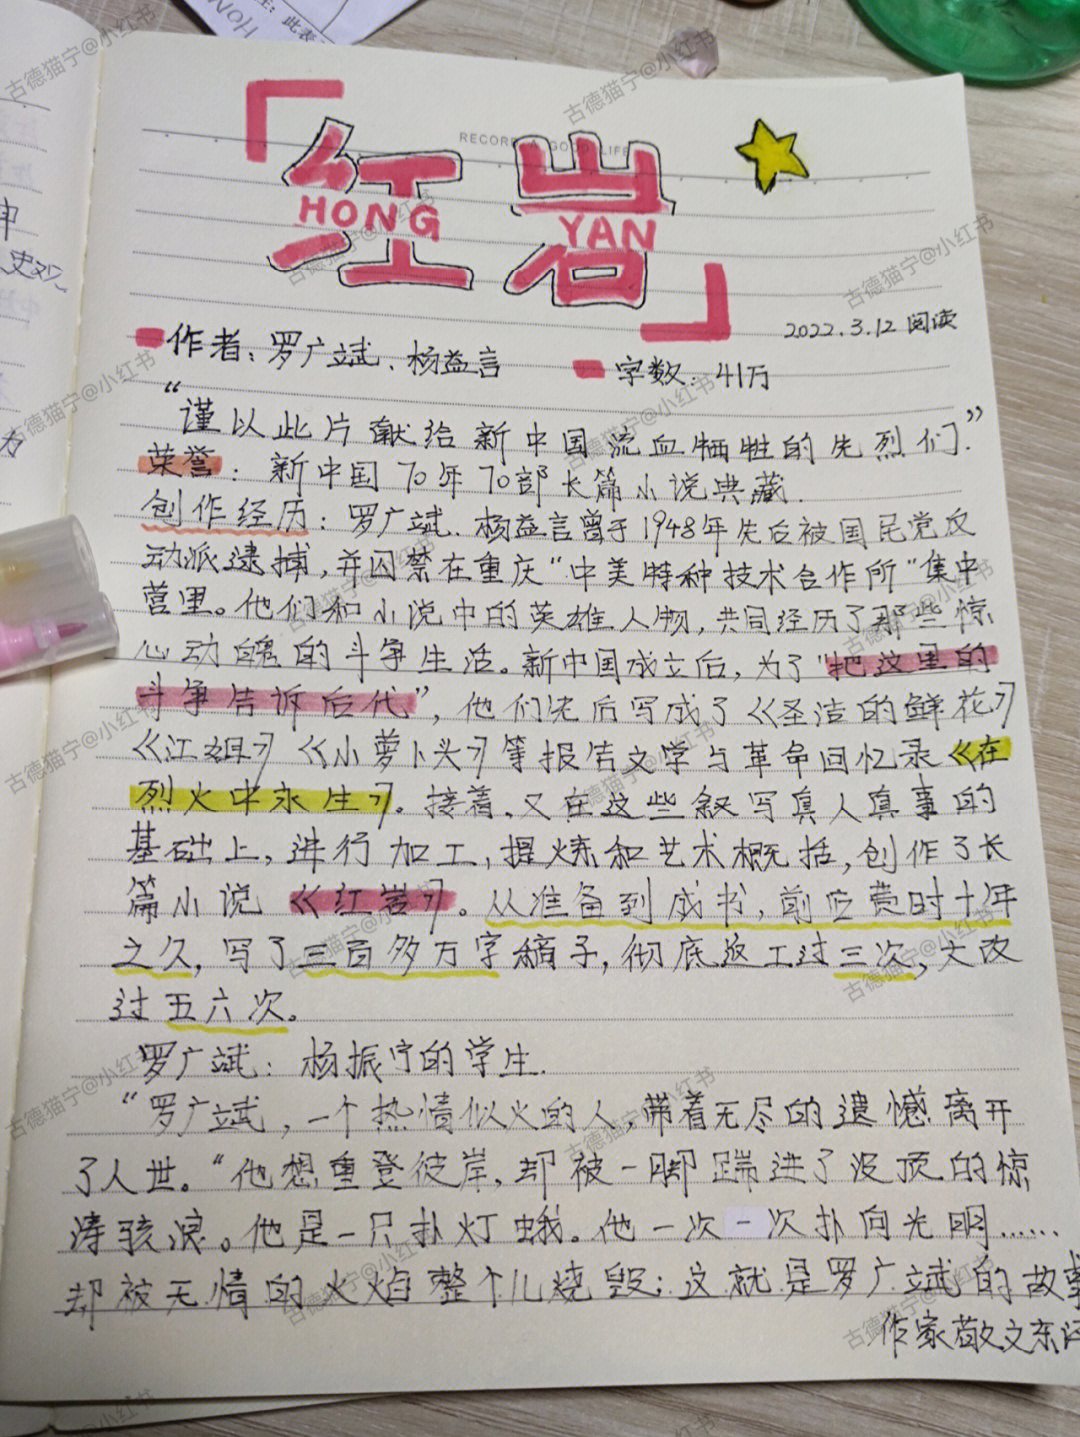 RECORD A GOOD LIFE
「红岩」
HONG YAN
2022.3.12 阅读
作者：罗广斌、杨益言 字数：41万
“谨以此片献给新中国流血牺牲的先烈们.”
荣誉：新中国70年70部长篇小说典藏.
创作经历：罗广斌、杨益言曾于1948年先后被国民党反
动派逮捕，并囚禁在重庆“中美特种技术合作所”集中
营里。他们和小说中的英雄人物，共同经历了那些惊
心动魄的斗争生活。新中国成立后，为了“把这里的
斗争告诉后代”，他们先后写成了《圣洁的鲜花》
《江姐》《小萝卜头》等报告文学与革命回忆录《在
烈火中永生》。接着，又在这些叙写真人真事的
基础上，进行加工，提炼和艺术概括，创作了长
篇小说《红岩》。从准备到成书，前后费时十年
之久，写了三百多万字稿子，彻底返工过三次，大改
过五六次。
罗广斌：杨振宁的学生.
“罗广斌，一个热情似火的人，带着无尽的遗憾离开
了人世。“他想重登彼岸，却被一脚踹进了没顶的惊
涛骇浪。他是一只扑灯蛾。他一次一次扑向光明……
却被无情的火焰整个儿烧毁；这就是罗广斌的故事
作家敬文东评
古德猫宁@小红书